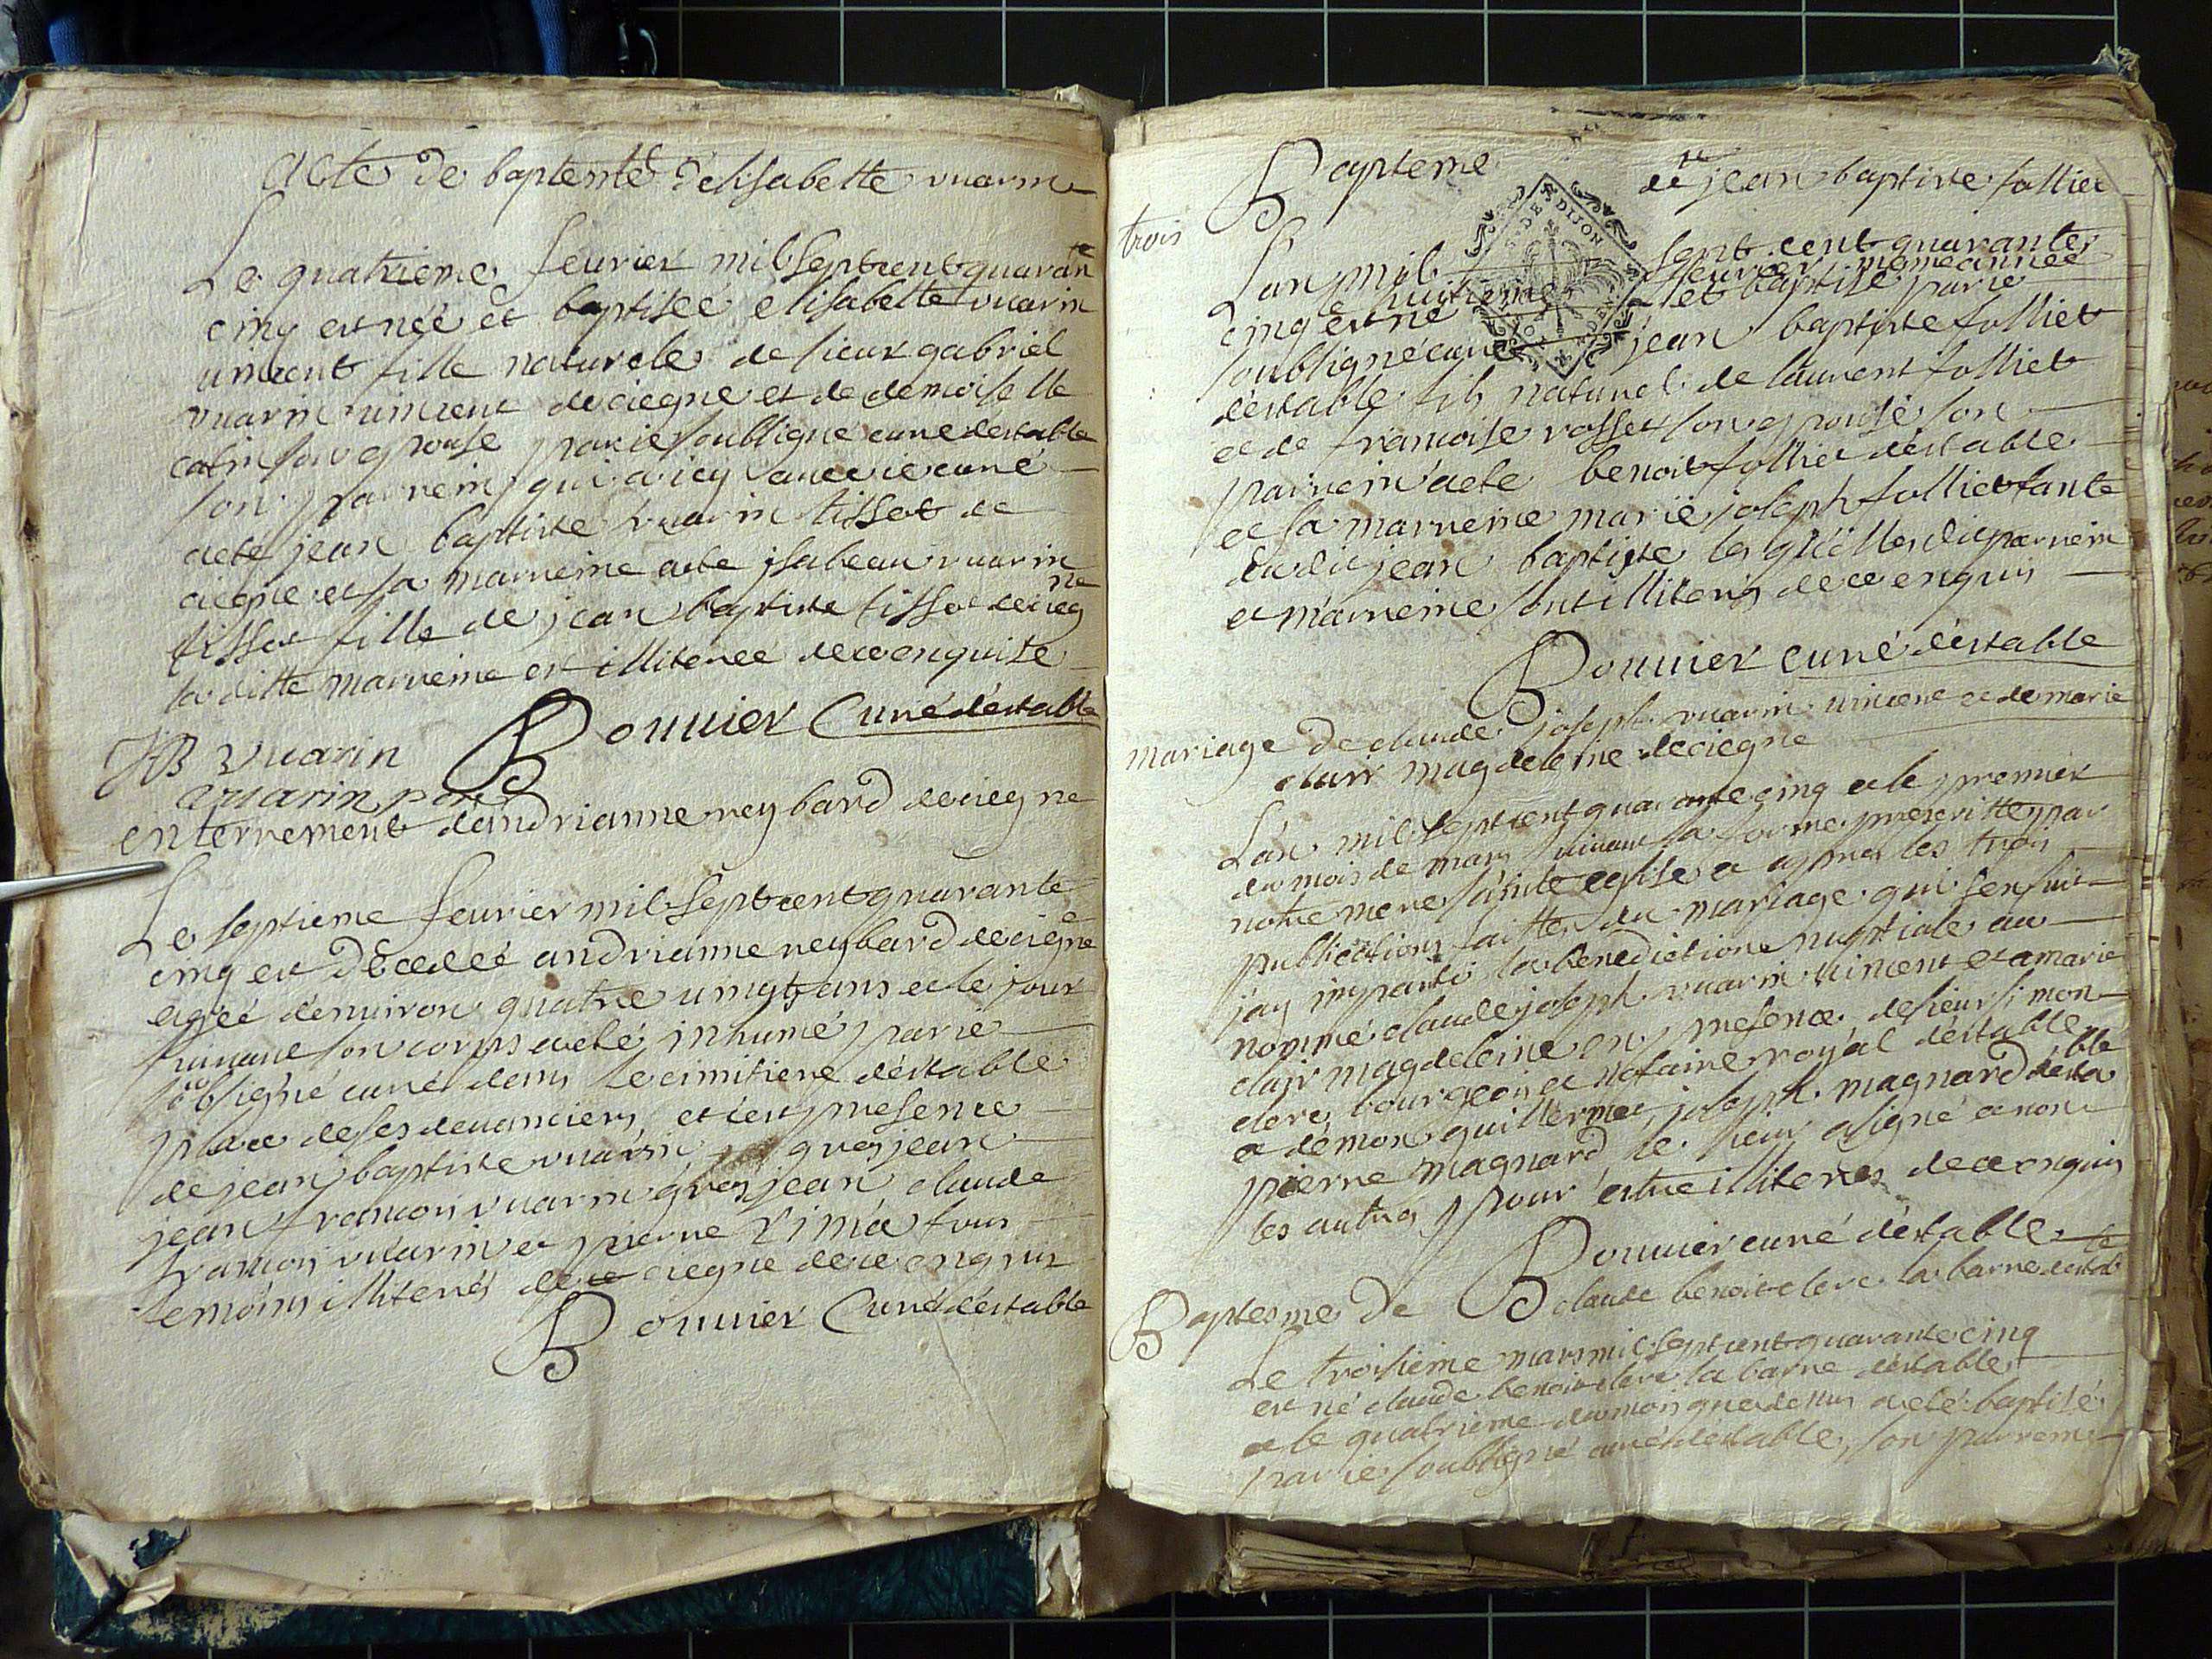 Acte de baptême d'elisabette vuarin
Le quatrieme fevrier mil sept cent quarante
cinq est née et baptisée elisabette vuarin
vincent fille naturele de sieur gabriel
vuarin vincent de ciegne et de demoiselle
son epouse par ie soubsigné curé d'estable
son parrein qui a icy avec ie curé
a été jean baptiste vuarin tissot de
ciegne et sa marreine a ete isabeau vuarin
tissot fille de jean baptiste tissot de ciegne
la ditte marreine est illiterée de ce enquise
Bouvier Curé d'estable
JB vuarin
vuarin pere
enterrement d'andrianne reybard de ciegne
Le septieme fevrier mil sept cent quarante
cinq est décedée andrianne reybard de ciegne
agée d'environ quatre vingts ans et le jour
suivant son corps a eté inhumé par ie
sobsigné curé dans le cimitiere d'estable
place de ses devanciers et c'est presence
de jean baptiste vuarin grosjean
jean francois vuarin grosjean, claude
francois vuarin et pierre rima tous
temoins illiterés de ciegne de ce enquis
Bouvier Curé d'estable
Bapteme de jean baptiste folliet
trois
L'an mil sept cent quarante
cinq et le huitieme fevrier meme année
est né et baptisé par ie
soubsigné curé jean baptiste folliet
d'estable fils naturel de laurent folliet
et de francoise rosset son epouse son
parrein a ete benoit folliet d'estable
et sa marreine marie joseph folliet tante
du dit jean baptiste les quelles dit parrein
et marreine sont illiterés de ce enquis
Bouvier curé d'estable
mariage de claude joseph vuarin vincent et de marie
clair magdeleine de ciegne
L'an mil sept cent quarante cinq et le premier
du mois de mars suivant la forme prescritte par
notre mere sainte eglise et apres les trois
publications faittes du mariage qui s'ensuit
j'ay imparti la benediction nuptiale au
nommé claude joseph vuarin vincent et a marie
clair magdeleine en presence de sieur simon
clerc bourgeois et notaire royal d'estable
et démon guillermet, joseph magnard d'estable
pierre magnard le sieur a signé et non
les autres pour estre illiterés de ce enquis
Bouvier curé d'estable
Baptesme de claude benoit clerc la barne d'estable
Le troisieme mars mil sept cent quarante cinq
est né claude benoit clerc la barne d'estable
et le quatrieme du mois que dessus a eté baptisé
par ie soubsigné curé d'estable, son parrein